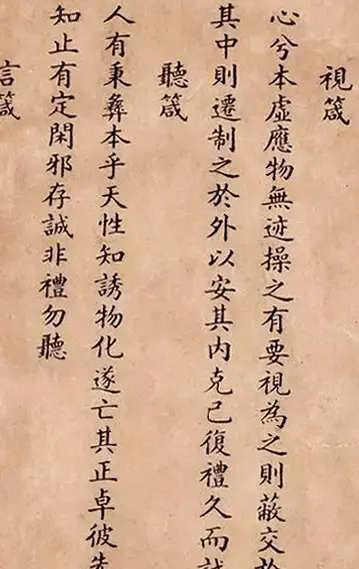 視箴
心兮本虛應物無迹操之有要視為之則蔽交於
其中則遷制之於外以安其内克己復禮久而誠
聽箴
人有秉彝本乎天性知誘物化遂亡其正卓彼先
知止有定閑邪存誠非禮勿聽
言箴